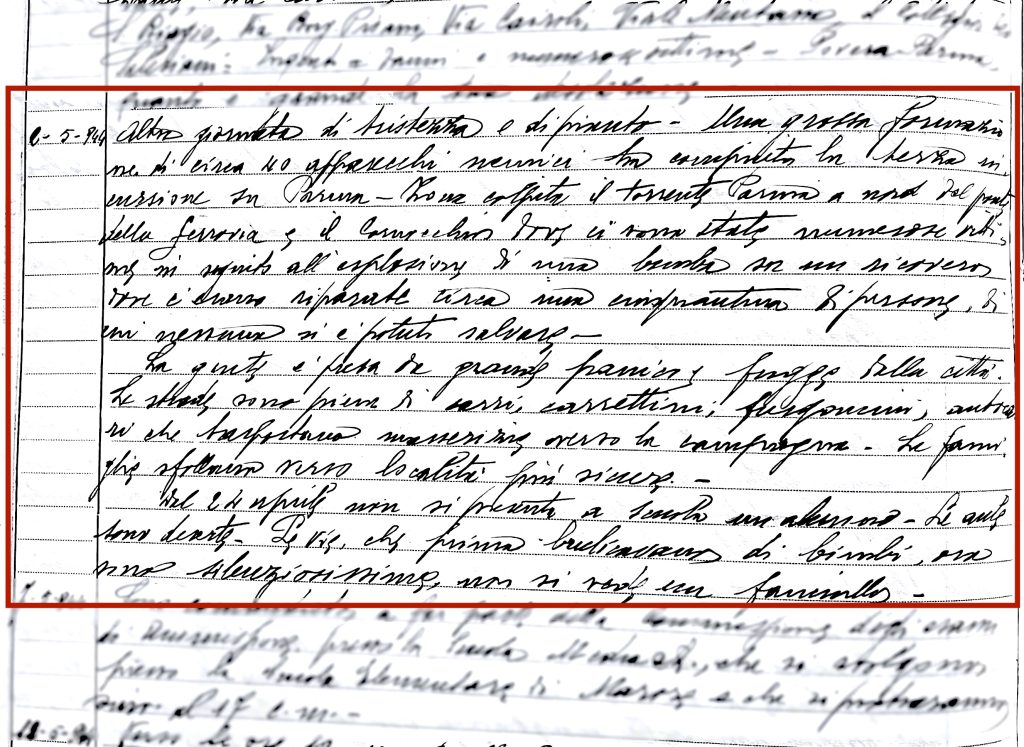 S. Biagio, Via Borg. Priamo, Via Cavour, Viale Mentana, il Collegio dei
Salesiani: Ingenti danni e numerose vittime - Povera Parma,
quanto è grande la tua
2-5-944 Altra giornata di tristezza e di pianto - Una grossa formazio
ne di circa 40 apparecchi nemici ha compiuto la terza in,
cursione su Parma - Zona colpita il torrente Parma a nord del ponte
della ferrovia e il Cornocchio dove ci sono state numerose vitti-
me in seguito all'esplosione di una bomba su un ricovero
dove c'erano riparate circa una cinquantina di persone, di
cui nessuna si è potuta salvare -
La gente è presa da grande panico e fugge dalla città.
Le strade sono piene di carri, carrettini, furgoncini, autocar
ri che trasportano masserizie verso la campagna - Le fami-
glie sfollano verso località più sicure. -
Dal 24 aprile non si presenta a scuola un alunno - Le aule
sono deserte - Le vie, che prima brulicavano di bimbi, ora
sono silenziosissime, non si vede un fanciullo -
7-5-944 Sono a far parte della commissione degli esami
di ammissione presso la Scuola Media che si svolgono
presso la Scuola Elementare di Marore e che si protrarranno
sino al 17 c.m. -
18-5-94 Verso le ore